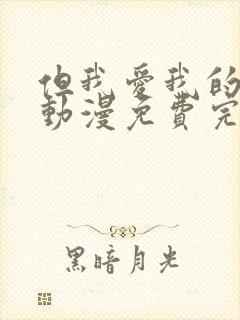 但我愛我的
動漫免費完
黑暗月光